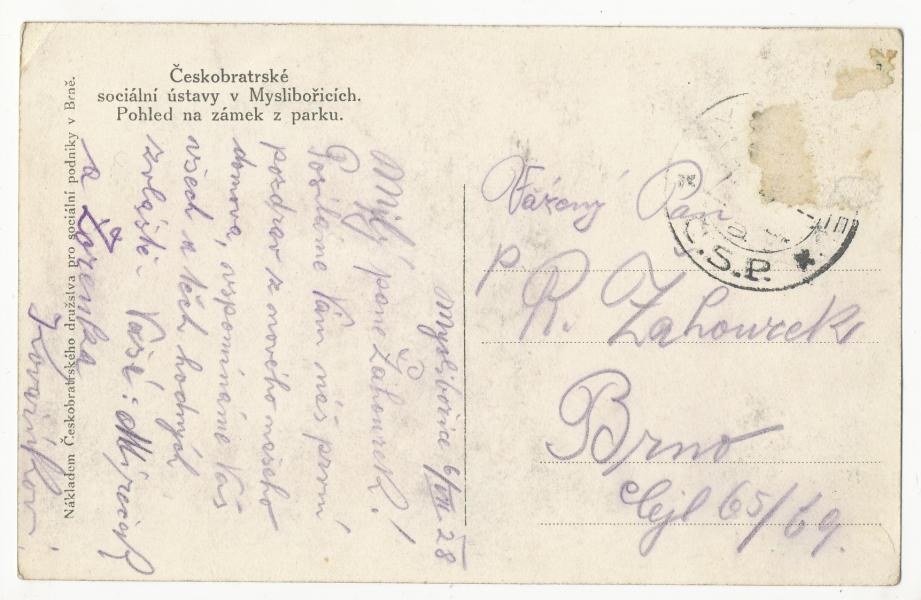 Českobratrské
sociální ústavy v Myslibořicích.
Pohled na zámek z parku.
Nákladem Českobratrského družstva pro sociální podniky v Brně.
Myslibořice 6/VII. 28
Milý pane Zahourek!
Posíláme Vám náš první
pozdrav z nového našeho
domova, vzpomínáme Vás
všech a těch hodných
zvláště. Vaši:
a Boženka
Kovaříkovi.
Vážený Pan
P. R. Zahourek
Brno
Cejl 65/69.
Č.S.P.